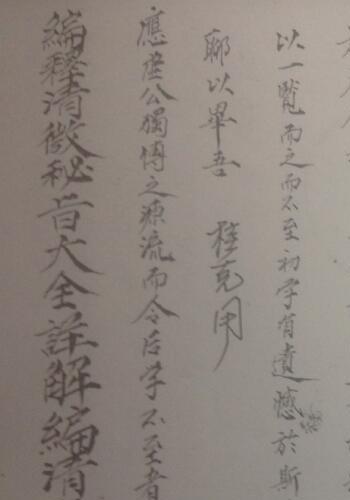 以一覽而之而不至初学有遺憾於斯
聊以畢吾 桂克用
應產公獨傳之源流而令后学不至者
編釋清微秘旨大全註解編清